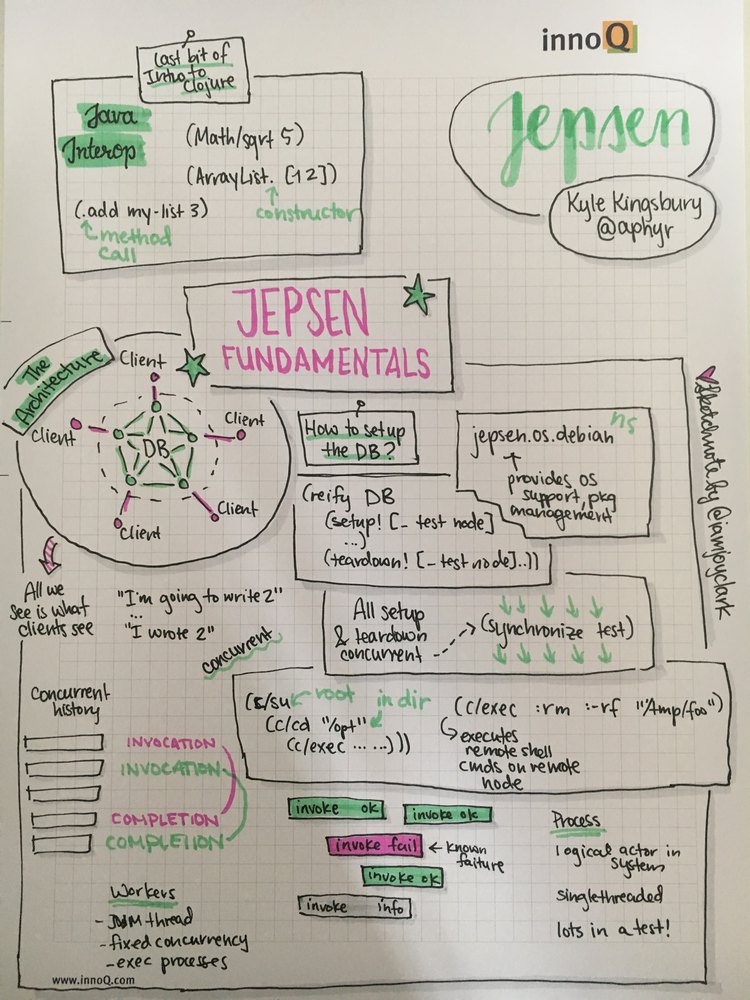 innoQ
Last bit of
Intro to
Clojure
Java
Interop
(Math/sqrt 5)
(ArrayList. [1 2])
constructor
(.add my-list 3)
method
call
Jepsen
Kyle Kingsbury
@aphyr
JEPSEN
FUNDAMENTALS
The
Architecture
Client
Client
Client
Client
Client
DB
How to setup
the DB?
jepsen.os.debian
ns
provides OS
support, pkg
management
(reify DB
(setup! [_ test node]
...)
(teardown! [_ test node]..))
sketchnote by @iamjoyclark
All we
see is what
clients see
"I'm going to write 2"
...
"I wrote 2"
concurrent
All setup
& teardown
concurrent
(synchronize test)
(c/su
root
in dir
(c/cd "/opt"
(c/exec ... ...)))
(c/exec :rm :-rf "/tmp/foo")
executes
remote shell
cmds on remote
node
Concurrent
history
INVOCATION
INVOCATION
COMPLETION
COMPLETION
invoke ok
invoke ok
invoke fail
known
failure
invoke ok
invoke info
Process
logical actor in
system
singlethreaded
lots in a test!
Workers
- JVM thread
- fixed concurrency
- exec processes
www.innoQ.com